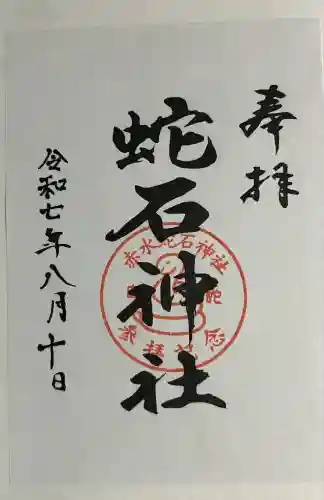 奉拝
蛇石神社
赤水蛇石神社
参拝記念
令和七年八月十日